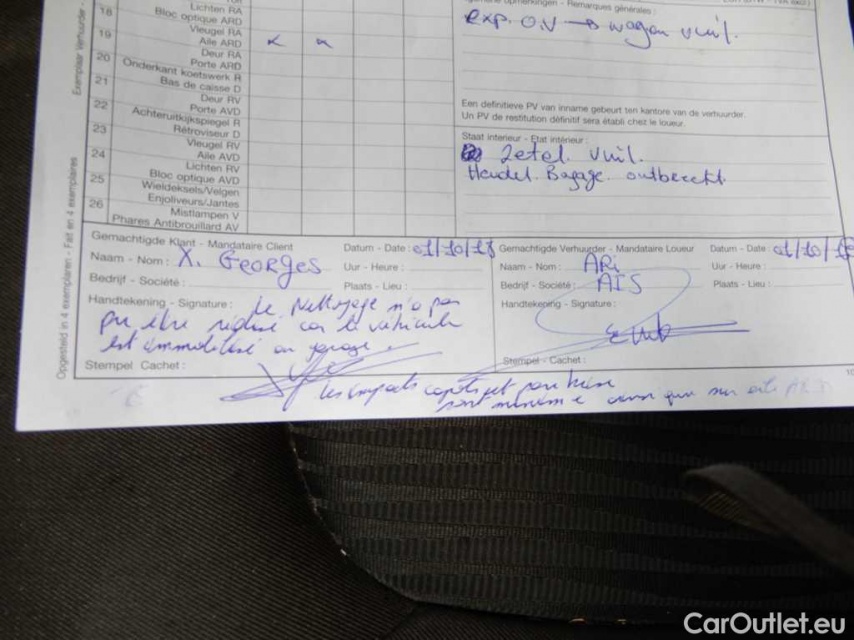 Exemplaar Verhuurder -
Opgesteld in 4 exemplaren - Fait en 4 exemplaires
18
Lichten RA
Bloc optique ARD
19
Vleugel RA
Aile ARD
20
Deur RA
Porte ARD
21
Onderkant koetswerk R
Bas de caisse D
22
Deur RV
Porte AVD
23
Achteruitkijkspiegel R
Rétroviseur D
24
Vleugel RV
Aile AVD
25
Lichten RV
Bloc optique AVD
26
Wieldeksels/Velgen
Enjoliveurs/Jantes
Mistlampen V
Phares Antibrouillard AV
opmerkingen - Remarques générales :
exp. O.V → wagen vuil.
Een definitieve PV van inname gebeurt ten kantore van de verhuurder.
Un PV de restitution définitif sera établi chez le loueur.
Staat interieur - Etat intérieur :
Zetel vuil.
Hendel Bagage ontbreekt.
Gemachtigde Klant - Mandataire Client
Datum - Date : 01/10/
Naam - Nom : X. Georges
Uur - Heure :
Bedrijf - Société :
Plaats - Lieu :
Handtekening - Signature : Le Nettoyage n'a pas
pu être réalisé car le véhicule
est immobilisé au garage.
Stempel Cachet :
Les impacts capot et pare brise
sont minime
Gemachtigde Verhuurder - Mandataire Loueur
Datum - Date : 01/10/
Naam - Nom : ARi
Uur - Heure :
Bedrijf - Société : AIS
Plaats - Lieu :
Handtekening - Signature :
Stempel - Cachet :
CarOutlet.eu